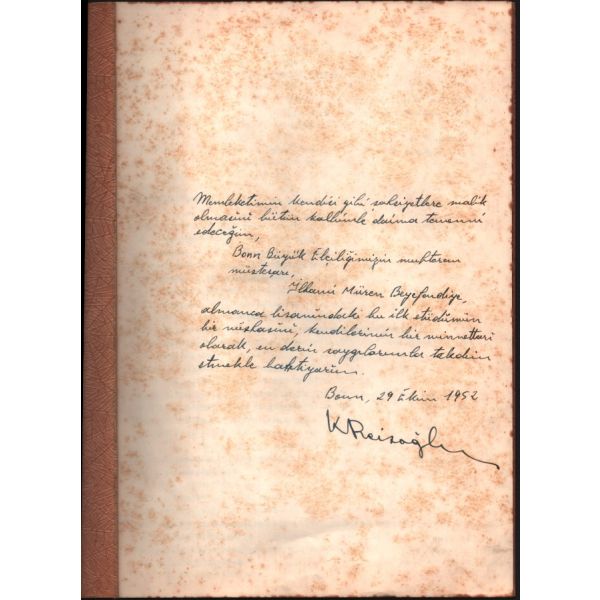 Memleketimin kendisi gibi şahsiyetlere malik
olmasını bütün kalbimle daima temenni
edeceğim,
Bonn Büyük Elçiliğimizin muhterem
müsteşarı,
İlhami Müren Beyefendiye,
almanca lisanındaki bu ilk etüdümün
bir nüshasını, kendilerinin bir minnettarı
olarak, en derin saygılarımla takdim
etmekle bahtiyarım.
Bonn, 29 Ekim 1952
K Reisoğlu